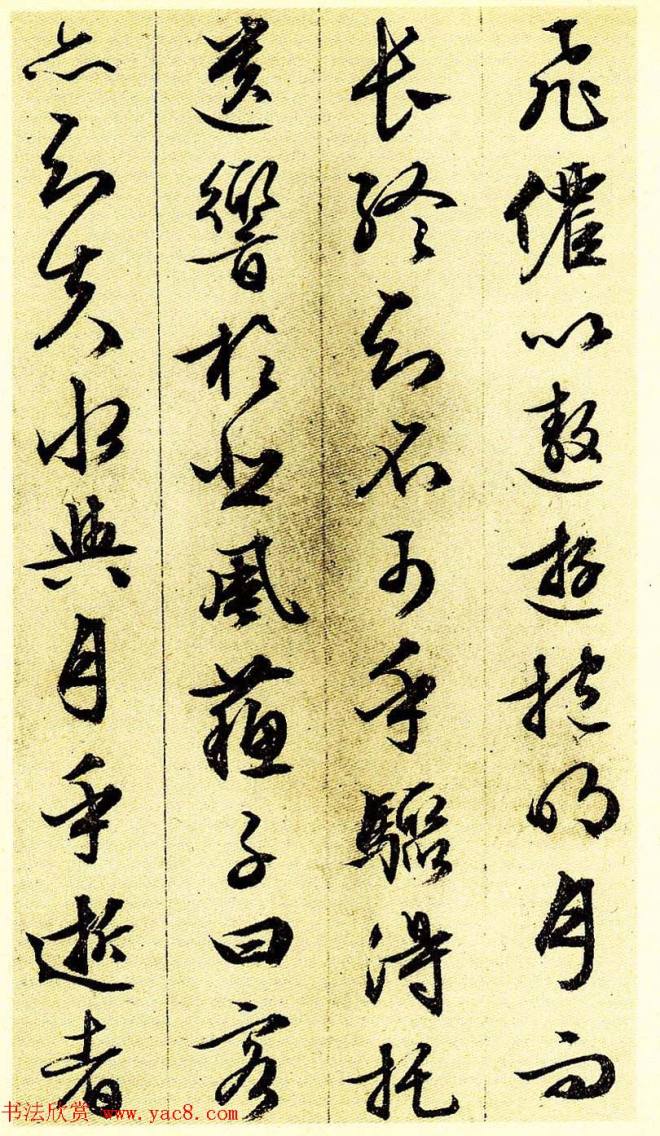 飛僊以遨遊抱明月而
長終知不可乎驟得托
遺響於悲風蘓子曰客
亦知夫水與月乎逝者
书法欣赏 www.yac8.com